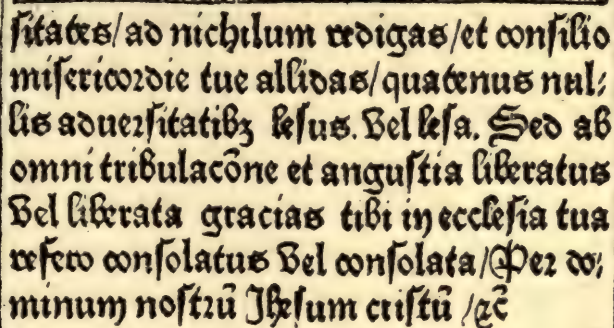 ſitates/ad nichilum redigas/et conſilio
miſericordie tue allidas/quatenus nul⸗
lis aduerſitatibꝫ leſus. Vel leſa. Sed ab
omni tribulacōne et anguſtia liberatus
Vel liberata gracias tibi in eccleſia tua
refero conſolatus Vel conſolata/Per do⸗
minum noſtrū Jheſum criſtū /ꝛc̄